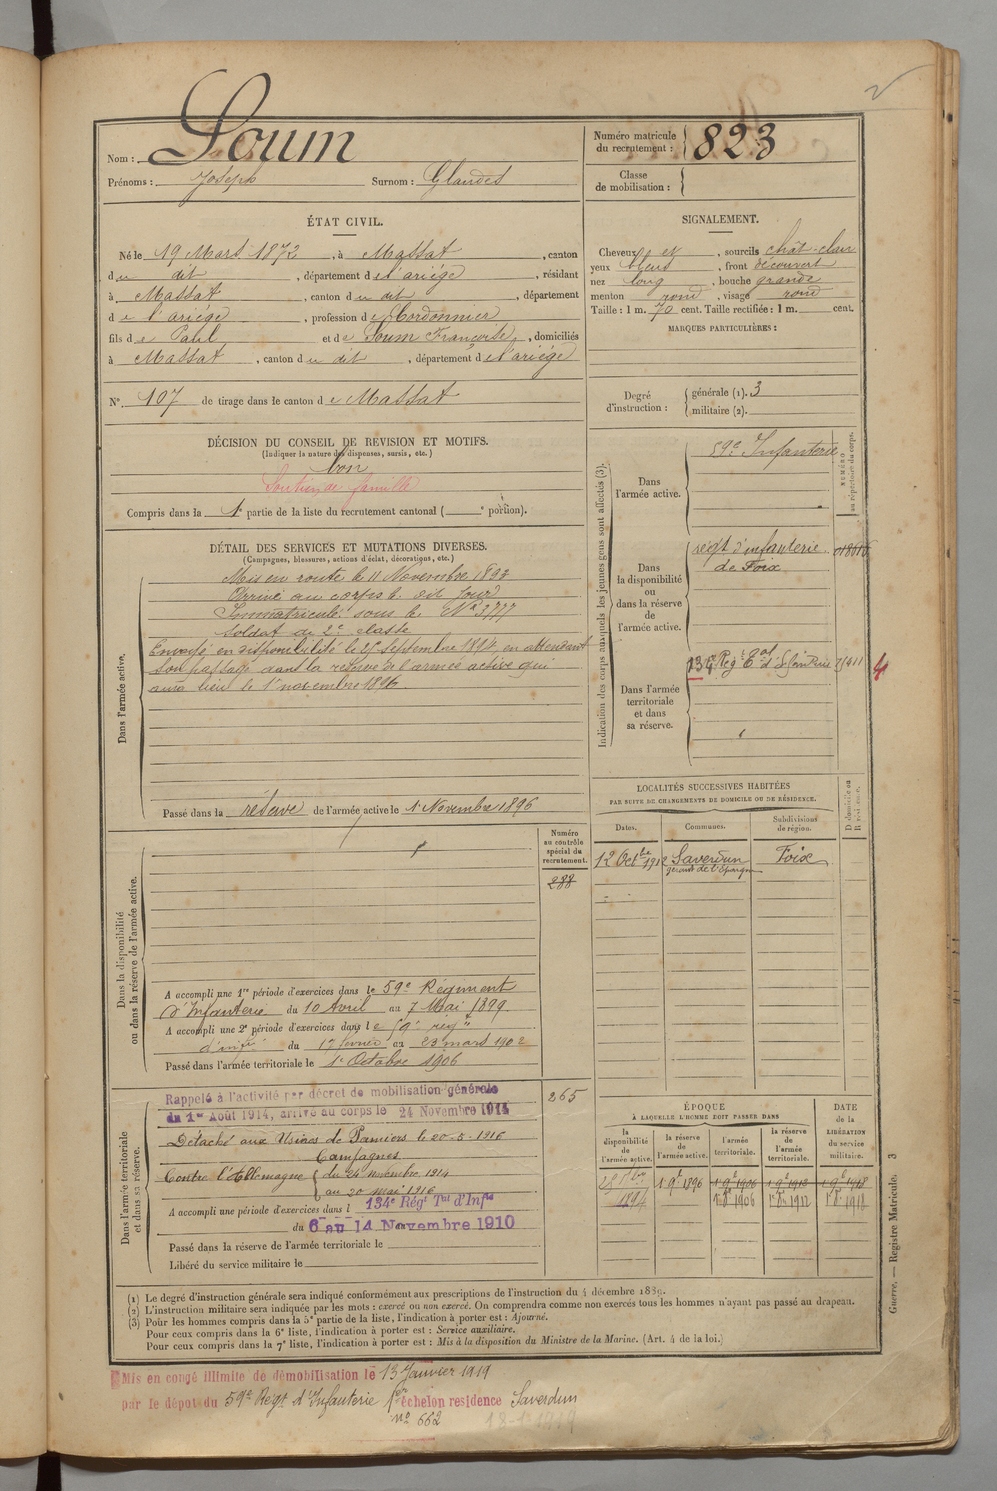 Nom : Soum
Prénoms : Joseph Surnom : Glandes
Numéro matricule du recrutement : 823
Classe de mobilisation :
ÉTAT CIVIL.
Né le 19 Mars 1872, à Massat, canton
du dit, département de l'ariège, résidant
à Massat, canton du dit, département
de l'ariège, profession de Cordonnier
fils de Paul et de Soum Françoise, domiciliés
à Massat, canton du dit, département de l'ariège
N° 107 de tirage dans le canton de Massat
SIGNALEMENT.
Cheveux et, sourcils chât-clair
yeux bleus, front découvert
nez long, bouche grande
menton rond, visage rond
Taille : 1 m. 70 cent. Taille rectifiée : 1 m. cent.
MARQUES PARTICULIÈRES :
Degré d'instruction : générale (1). 3
militaire (2).
DÉCISION DU CONSEIL DE REVISION ET MOTIFS.
(Indiquer la nature des dispenses, sursis, etc.)
bon
Soutien de famille
Compris dans la 1e partie de la liste du recrutement cantonal ( e portion).
DÉTAIL DES SERVICES ET MUTATIONS DIVERSES.
(Campagnes, blessures, actions d'éclat, décorations, etc.)
Dans l'armée active.
Mis en route le 11 Novembre 1893
Arrivé au corps le dit jour
Immatriculé sous le N° 3777
Soldat de 2e classe
Envoyé en disponibilité le 25 septembre 1894, en attendant
son passage dans la réserve de l'armée active qui
aura lieu le 1er novembre 1896
Passé dans la réserve de l'armée active le 1 Novembre 1896
Indication des corps auxquels les jeunes gens sont affectés (3).
NUMÉRO au répertoire du corps.
Dans l'armée active.
59e Infanterie
Dans la disponibilité ou dans la réserve de l'armée active.
régt d'infanterie
de Foix
Dans l'armée territoriale et dans sa réserve.
134e Rég t al d'Infanterie
4
LOCALITÉS SUCCESSIVES HABITÉES
PAR SUITE DE CHANGEMENTS DE DOMICILE OU DE RÉSIDENCE.
Dates. Communes. Subdivisions de région. D domicile ou R résidence.
12 Octbre 1912 Saverdun Foix
Dans la disponibilité ou dans la réserve de l'armée active.
Numéro au contrôle spécial du recrutement.
288
A accompli une 1re période d'exercices dans le 59e Régiment
d'Infanterie du 10 Avril au 7 Mai 1899
A accompli une 2e période d'exercices dans le 59e régt
d'infie du 1er février au 23 mars 1902
Passé dans l'armée territoriale le 1er Octobre 1906
Dans l'armée territoriale et dans sa réserve.
265
Rappelé à l'activité par décret de mobilisation générale
du 1er Août 1914, arrivé au corps le 24 Novembre 1914
Détaché aux Usines de Pamiers le 20-5-1916
Campagnes
Contre l'Allemagne du 24 novembre 1914
au 20 mai 1916
A accompli une période d'exercices dans l 134e Régt Tal d'Infie
du 6 au 14 Novembre 1910
Passé dans la réserve de l'armée territoriale le
Libéré du service militaire le
ÉPOQUE
À LAQUELLE L'HOMME DOIT PASSER DANS
DATE de la LIBÉRATION du service militaire.
la disponibilité de l'armée active.
la réserve de l'armée active.
l'armée territoriale.
la réserve de l'armée territoriale.
1894 1 9bre 1896 1 9bre 1906 1 9bre 1912 1 9bre 1918
1er 8bre 1906 1er 8bre 1912 1er 8bre 1918
(1) Le degré d'instruction générale sera indiqué conformément aux prescriptions de l'instruction du 4 décembre 1889.
(2) L'instruction militaire sera indiquée par les mots : exercé ou non exercé. On comprendra comme non exercés tous les hommes n'ayant pas passé au drapeau.
(3) Pour les hommes compris dans la 5e partie de la liste, l'indication à porter est : Ajourné.
Pour ceux compris dans la 6e liste, l'indication à porter est : Service auxiliaire.
Pour ceux compris dans la 7e liste, l'indication à porter est : Mis à la disposition du Ministre de la Marine. (Art. 4 de la loi.)
Guerre. — Registre Matricule. 3
Mis en congé illimité de démobilisation le 13 Janvier 1919
par le dépôt du 59e Régt d'Infanterie 1er échelon résidence Saverdun
n° 662